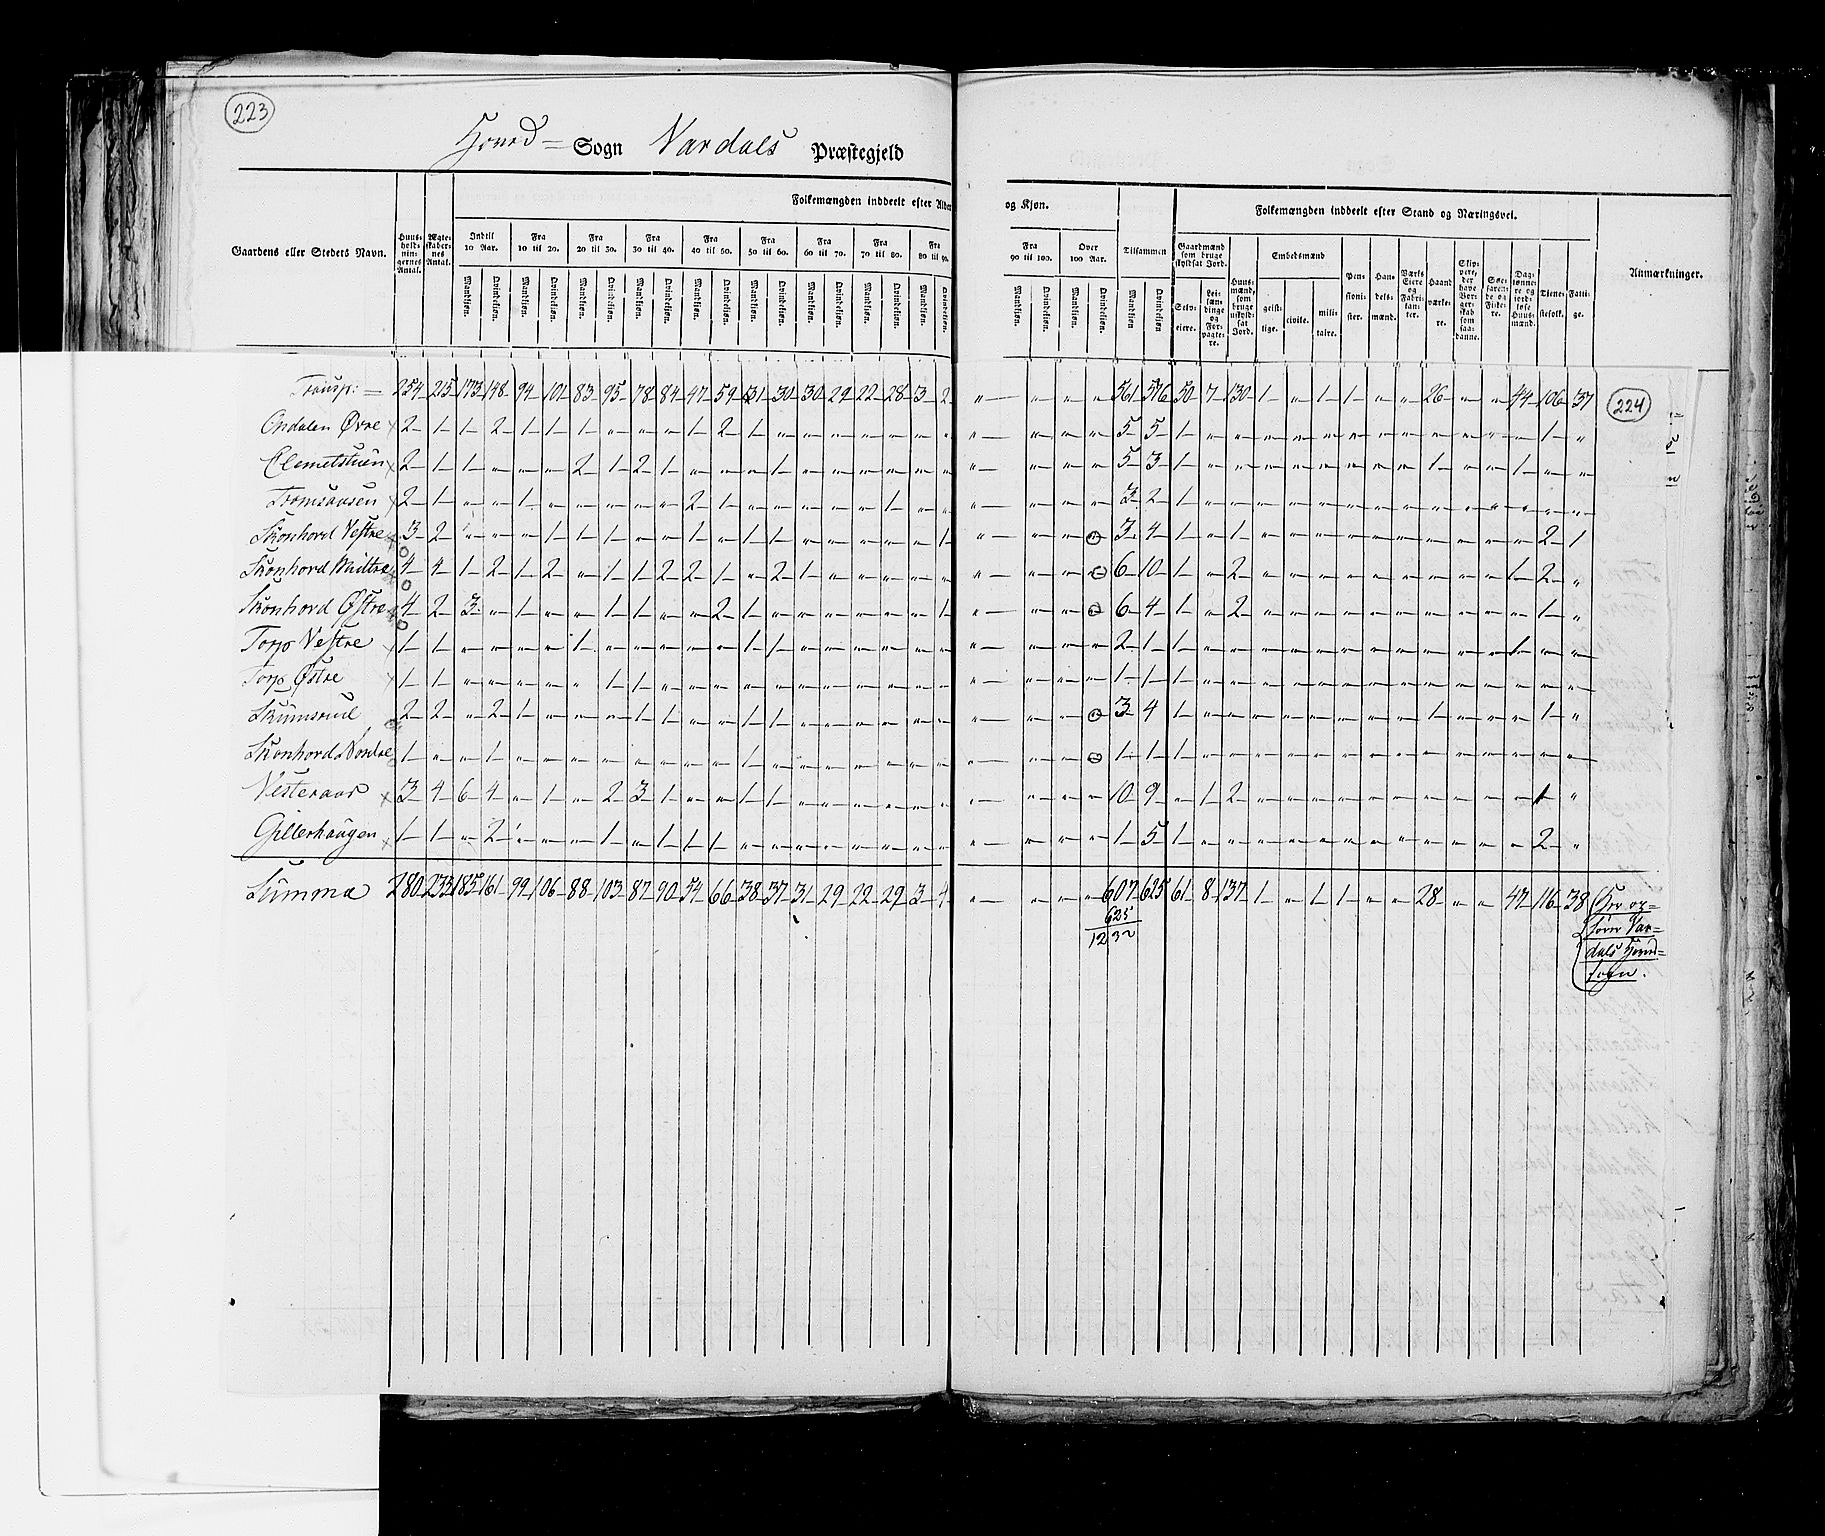 223
Hovd = Sogn Vardals Præstegjeld
Folkemængden inddeelt efter Alder og Kjøn.
Folkemængden inddeelt efter Stand og Næringsvei.
Gaardens eller Stedets Navn.
Huusholdningernes Antal.
Ægteskabernes Antal.
Indtil 10 Aar.
Fra 10 til 20.
Fra 20 til 30.
Fra 30 til 40.
Fra 40 til 50.
Fra 50 til 60.
Fra 60 til 70.
Fra 70 til 80.
Fra 80 til 90.
Fra 90 til 100.
Over 100 Aar.
Tilsammen
Mandkiøn. Qvindekiøn.
Gaardmænd som bruge skyldsat Jord.
Selveiere.
Leilændinge og Forpagtere.
Huusmænd, som bruge uskyldsat Jord.
Embedsmænd
geistlige.
civile.
militaire.
Pensionister.
Handelsmænd.
Værks Eiere og Fabrikanter.
Haandværkere.
Skippere, der have Borgerskab som saadanne.
Søefarende og Fiskere.
Daglønnere og jordløse Huusmænd.
Tjenestefolk.
Fattige.
Anmærkninger.
Transp: = 254 215 173 148 94 101 83 95 78 84 47 59 31 30 30 29 22 28 3 2 " " " " 561 576 50 7 130 1 " 1 1 " " 26 " " 44 106 37
224
Ondalen Øvre 2 1 1 2 1 1 1 1 " " " 1 2 " 1 " " " " " " " " " " 5 5 1 " " " " " " " " " " " " 1 "
Clemetstuen 2 1 1 " " " 2 1 2 1 " " " 1 " " " " " " " " " " 5 3 1 " " " " " " " " 1 " " 1 " "
Tromsausen 2 1 " " 1 " " " " " 2 1 " " " " " 1 " " " " " " 3 2 1 " " " " " " " " " " " " " "
Skonhord Vestre 3 2 " " " 1 1 1 1 " 1 " 1 1 " " " " " 1 " " " " 3 4 1 " 1 " " " " " " " " " " 2 1
Skonhord Midtre 4 4 1 2 1 2 " 1 1 2 2 1 " 2 1 " " " " " " " " " 6 10 1 " 2 " " " " " " " " " 1 2 "
Skonhord Østre 4 2 3 " 1 " " 1 1 " " 2 1 " " " " " " 1 " " " " 6 4 1 " 2 " " " " " " " " " " 1 "
Torp Vestre 1 1 " " " " 1 " " " " " 1 1 " " " " " " " " " " 2 1 1 " " " " " " " " " " " 1 " "
Torp Østre 1 1 " " " " " 1 1 " " " " " " " " " " " " " " " 1 1 1 " " " " " " " " " " " " " "
Skumsrud 2 2 " 2 1 " " " 1 1 " " 1 1 " " " " " " " " " " 3 4 1 " " " " " " " " 1 " " " 1 "
Skonhord Nordre 1 " " 1 " " " " " " " " 1 " " " " " " " " " " " 1 1 1 " " " " " " " " " " " " " "
Vesteraas 3 4 6 4 " 1 " 2 3 1 " " 1 1 " " " " " " " " " " 10 9 " 1 2 " " " " " " " " " " 1 "
Gillerhaugen 1 1 " 2 " " " 1 " 1 1 1 " " " " " " " " " " " " 1 5 1 " " " " " " " " " " " " 2 "
Summa 280 233 185 161 99 106 88 103 87 90 54 66 38 37 31 29 22 29 3 4 " " " " 607 625 61 8 137 1 " 1 1 " " 28 " " 47 116 38
625
1232
dals Hovd=
sogn.